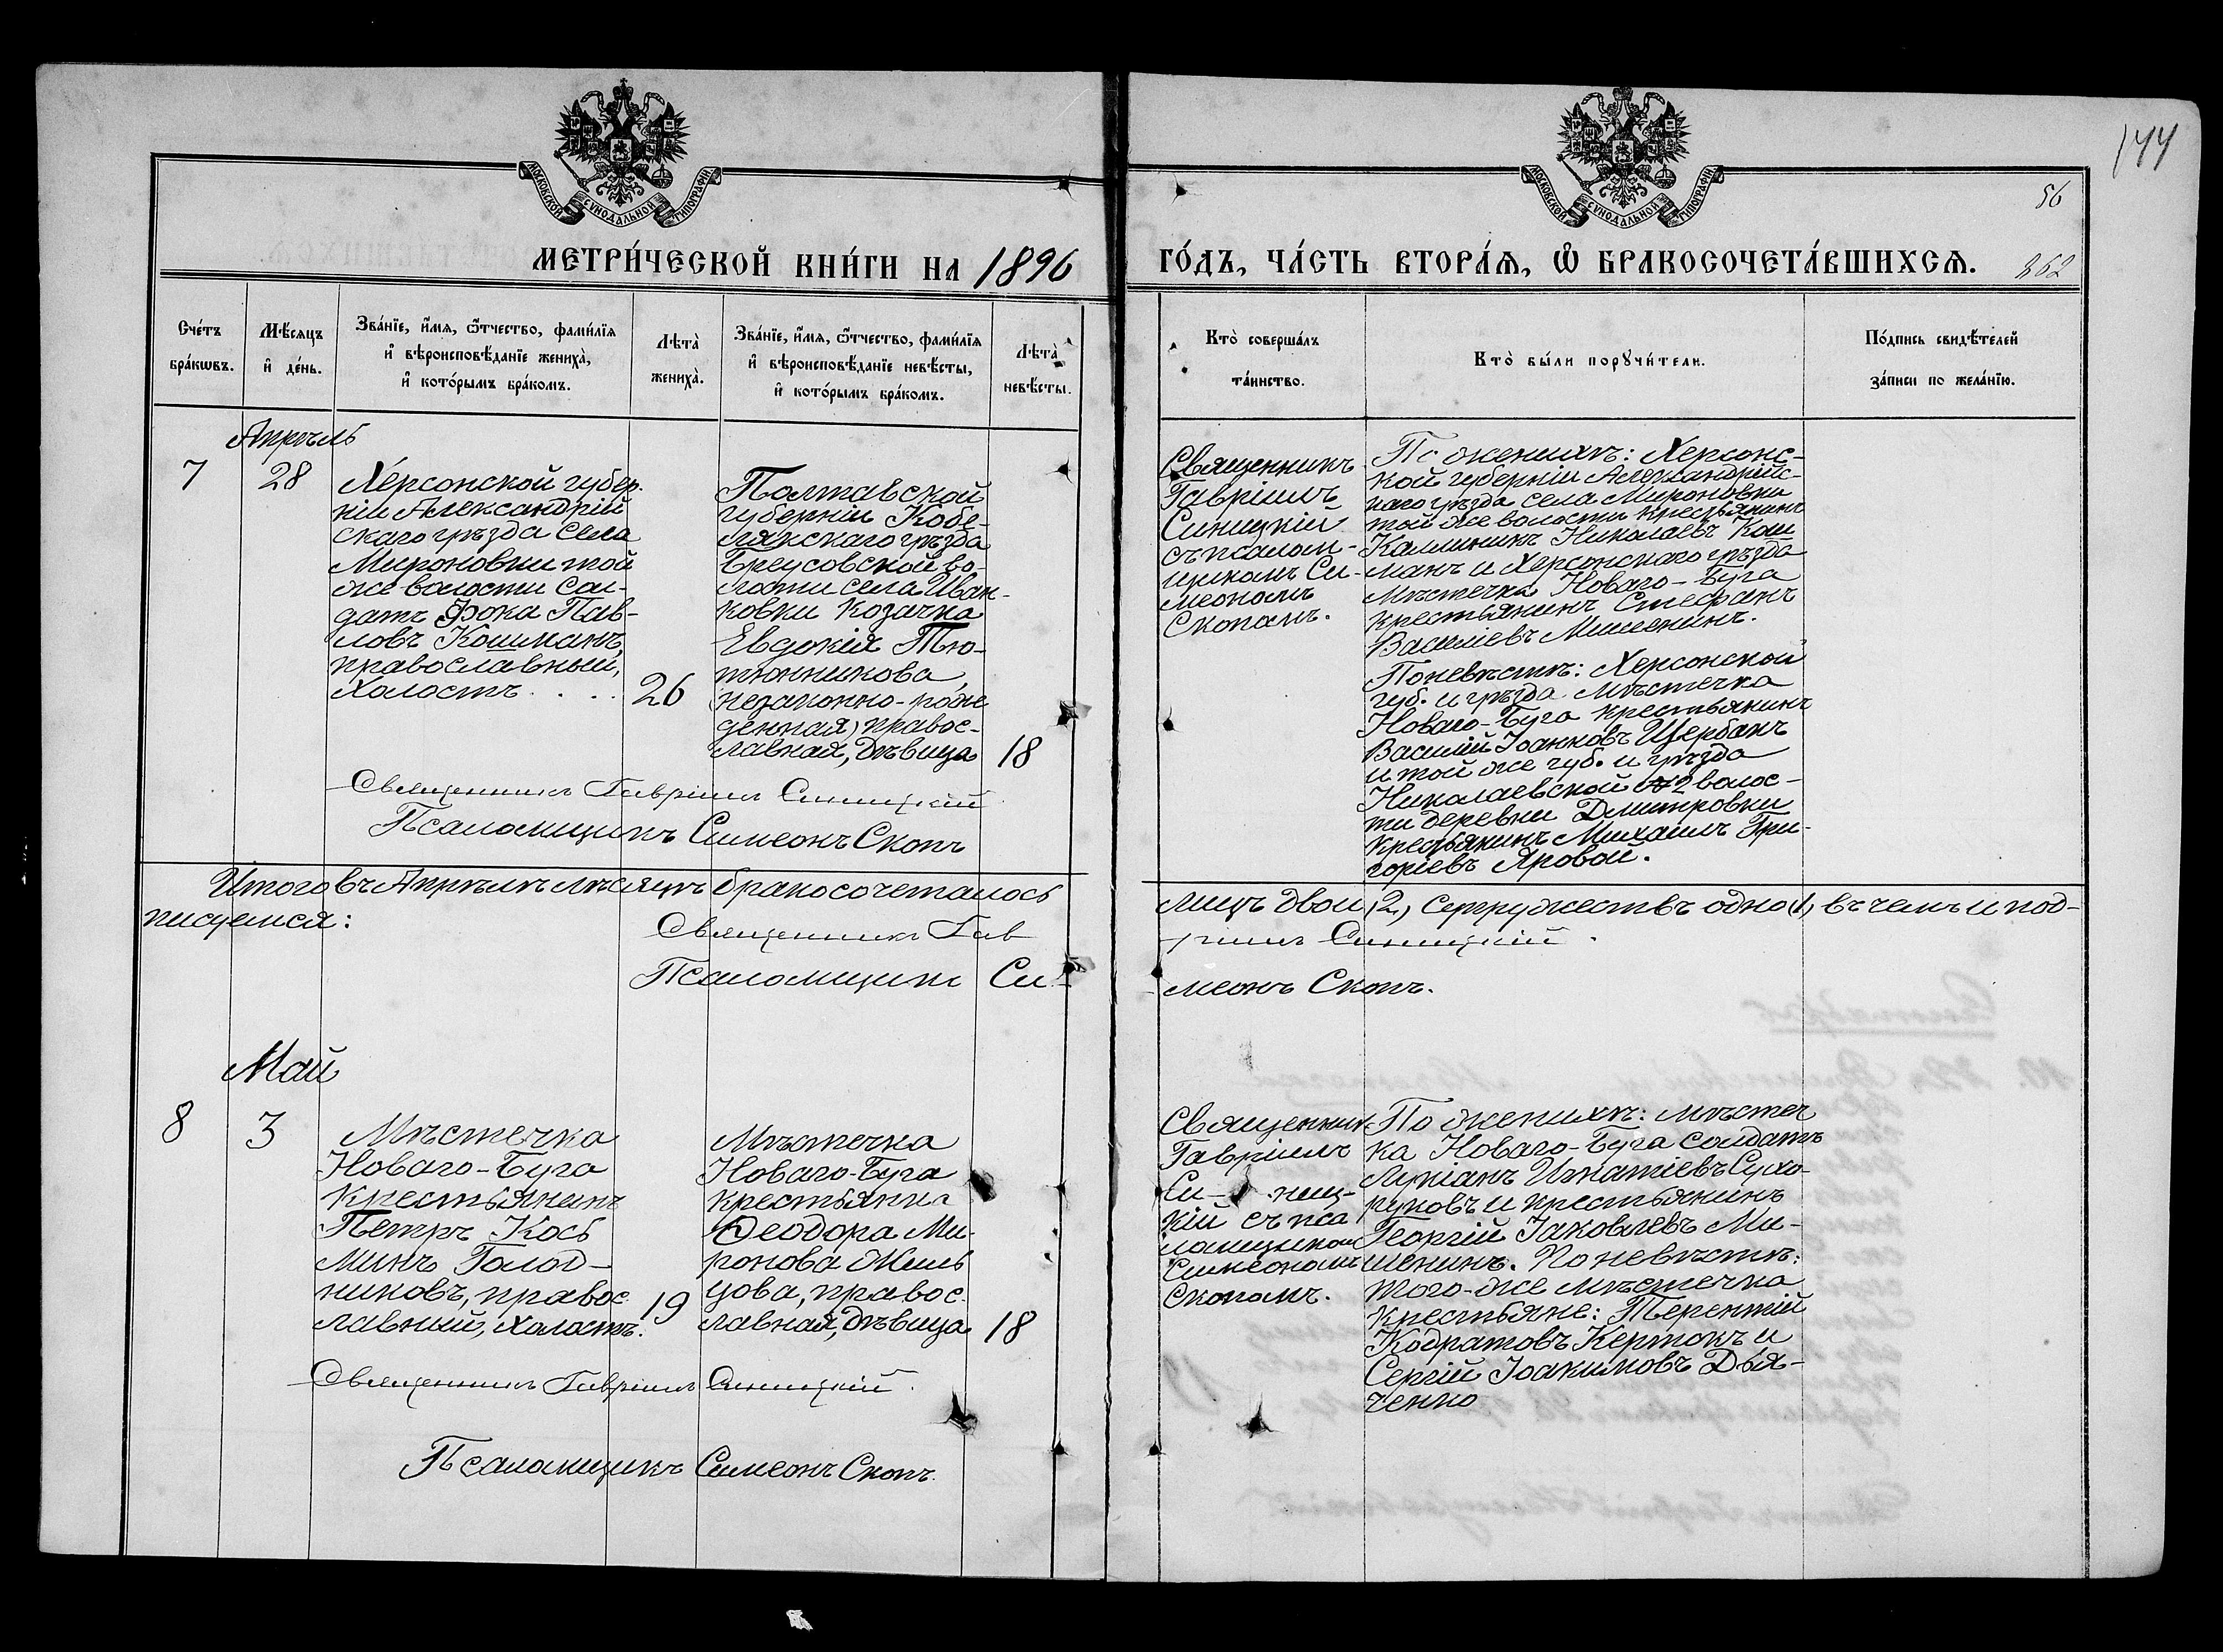 МОСКОВСКОЙ СѴНОДАЛЬНОЙ ТИПОГРАФІИ
МОСКОВСКОЙ СѴНОДАЛЬНОЙ ТИПОГРАФІИ
144
56
МЕТРИ́ЧЕСКОЙ КНИ́ГИ НА 1896
ГО́ДЪ, ЧА́СТЬ ВТОРА́Я, Ѡ БРАКОСОЧЕТА́ВШИХСЯ.
262
Сче́тъ
бра́кѡвъ.
Мѣ́сяцъ
и҆ де́нь.
Зва́нїе, и҆́мя, ѻ҆́тчество, фами́лїя
и҆ вѣроисповѣ́данїе жениха̀,
и҆ кото́рымъ бра́комъ.
Лѣта̀
жениха̀.
Зва́нїе, и҆́мя, ѻ҆́тчество, фами́лїя
и҆ вѣроисповѣ́данїе невѣ́сты,
и҆ кото́рымъ бра́комъ.
Лѣта̀
невѣ́сты.
Кто̀ соверша́лъ
та́инство.
Кто̀ бы́ли порꙋчи́тели.
По́дпись свидѣ́телей
за́писи по жела́нїю.
Апрѣль
7
28
Херсонской губер-
ніи Александрій
скаго уѣзда села
Мироновки той
же волости сол-
датъ Фока Пав-
ловъ Кошманъ,
православный,
холостъ . . .
26
Полтавской
губерніи Кобе-
лякскаго уѣзда
Бреусовской во-
лости села Иван-
ковки козачка
Евдокія Тю-
тюнникова,
незаконно-рож
денная, правос-
лавная, дѣвица
18
Священникъ
Гавріилъ
Синицкій
съ псалом-
щикомъ Си-
меономъ
Скопомъ.
По женихѣ: Херсонс-
кой губерніи Александрійс-
каго уѣзда села Мироновки
той же волости крестьянинъ
Каллиникъ Николаевъ Кош
манъ и Херсонскаго уѣзда
мѣстечка Новаго-Буга
крестьянинъ Стефанъ
Василіевъ Мишенинъ.
По невѣстѣ: Херсонской
губ. и уѣзда мѣстечка
Новаго-Буга крестьянинъ
Василій Іоанновъ Щербакъ
и той же губ. и уѣзда
Николаевской № 2 волос-
ти деревни Дмитровки
крестьянинъ Михаилъ Гри-
горіевъ Яровой.
Священникъ Гавріилъ Синицкій
Псаломщикъ Симеонъ Скопъ
Итого въ Апрѣлѣ мѣсяцѣ бракосочеталось
лицъ двои (2) супружествъ одно (1) въ чемъ и под-
писуемся:
Священникъ Гав
ріилъ Синицкій.
Псаломщикъ Си-
меонъ Скопъ.
Май
8
3
Мѣстечка
Новаго-Буга
крестьянинъ
Петръ Кось
минъ Голод-
никовъ, правос
лавный, холостъ.
19
Мѣстечка
Новаго-Буга
крестьянка
Ѳеодора Ми-
ронова Жель
цова, правос-
лавная, дѣвица
18
Священникъ
Гавріилъ
Си- ниц-
кій съ пса
ломщикомъ
Симеономъ
Скопомъ.
По женихѣ: мѣстеч
ка Новаго-Буга солдатъ
Лукіанъ Игнатіевъ Сухо-
руковъ и крестьянинъ
Георгій Іаковлевъ Ми-
шенинъ. По невѣстѣ:
того-же мѣстечка
крестьяне: Терентій
Кодратовъ Кертокъ и
Сергій Іоакимовъ Дья-
ченко
Священникъ Гавріилъ Синицкій.
Псаломщикъ Симеонъ Скопъ.